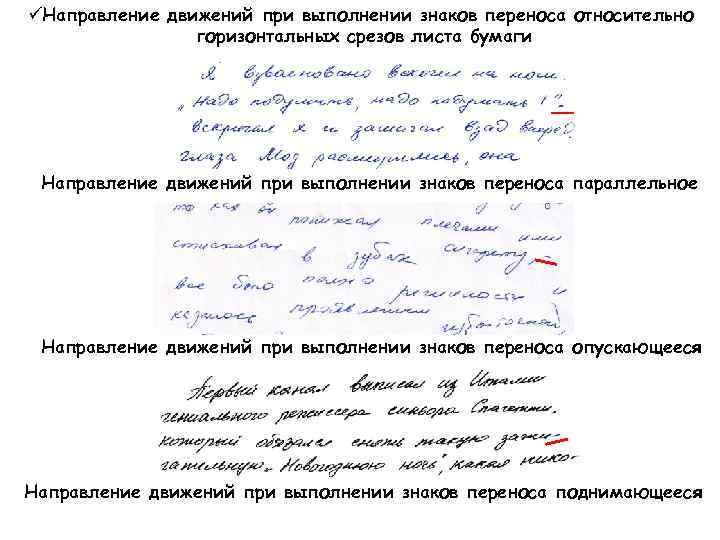 ✓Направление движений при выполнении знаков переноса относительно
горизонтальных срезов листа бумаги
Я взволновано вскочил на ноги.
„Надо подумать, надо подумать!“-
вскричал я и зашагал взад вперед,
глаза Мод расширились, она
Направление движений при выполнении знаков переноса параллельное
то как он пожимал плечами или
стискивал в зубах сигарету,
все было полно решимости и
казалось проявлением
избыточной,
Направление движений при выполнении знаков переноса опускающееся
Первый канал выписал из Италии
гениального режиссера синьора Спагетти.
который обязался снять такую зажи-
гательную „Новогоднюю ночь“, какая нико-
Направление движений при выполнении знаков переноса поднимающееся